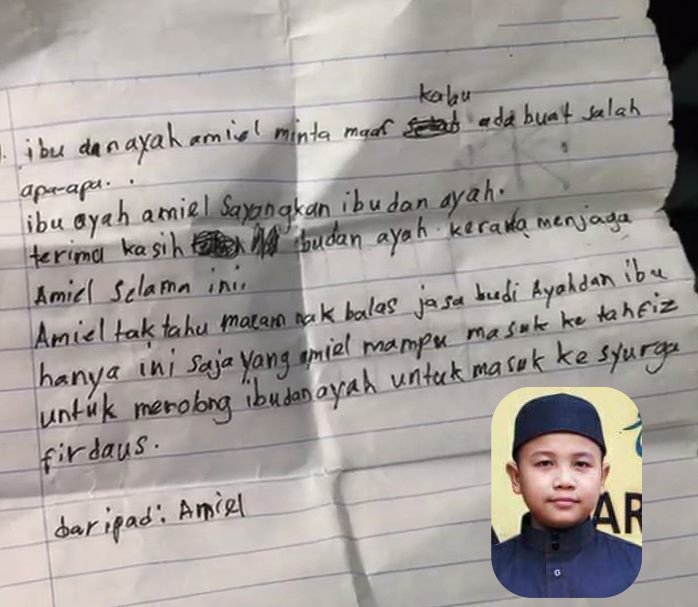 ibu dan ayah amiel minta maaf kalau ada buat salah
apa-apa..
ibu ayah amiel sayangkan ibu dan ayah.
terima kasih ibu dan ayah kerana menjaga
Amiel Selama ini.
Amiel tak tahu macam nak balas jasa budi Ayah dan ibu
hanya ini saja yang amiel mampu masuk ke tahfiz
untuk menolong ibu dan ayah untuk masuk ke syurga
firdaus.
daripad: Amiel
AR